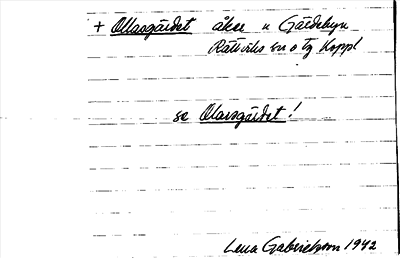 + Ollasgärdet åker u Gärdebyn
Rättviks sn o tg Koppl
se Olarsgärdet!
Lena Gabrielsson 1942